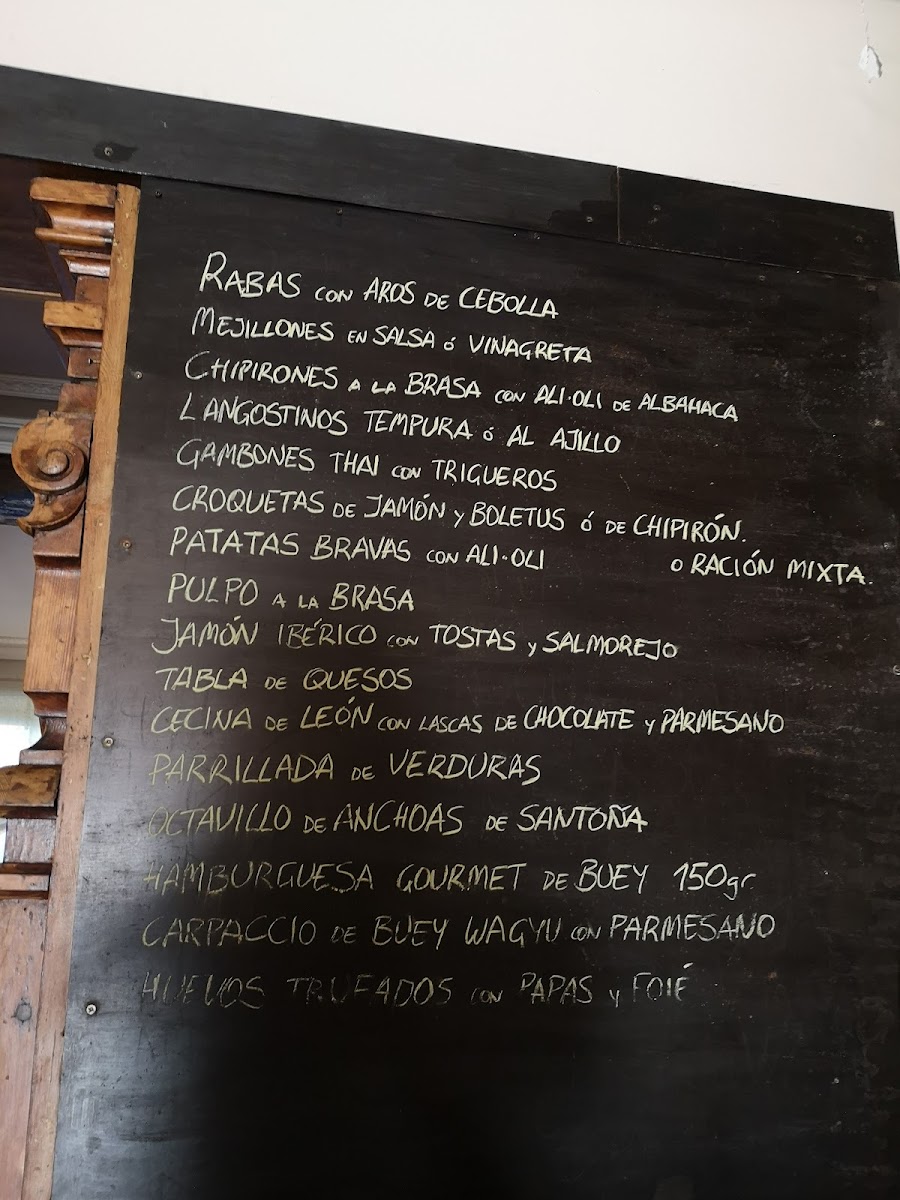 RABAS CON AROS DE CEBOLLA
MEJILLONES EN SALSA Ó VINAGRETA
CHIPIRONES A LA BRASA CON ALI·OLI DE ALBAHACA
LANGOSTINOS TEMPURA Ó AL AJILLO
GAMBONES THAI CON TRIGUEROS
CROQUETAS DE JAMÓN Y BOLETUS Ó DE CHIPIRÓN.
O RACIÓN MIXTA.
PATATAS BRAVAS CON ALI·OLI
PULPO A LA BRASA
JAMÓN IBÉRICO CON TOSTAS Y SALMOREJO
TABLA DE QUESOS
CECINA DE LEÓN CON LASCAS DE CHOCOLATE Y PARMESANO
PARRILLADA DE VERDURAS
OCTAVILLO DE ANCHOAS DE SANTOÑA
HAMBURGUESA GOURMET DE BUEY 150gr
CARPACCIO DE BUEY WAGYU CON PARMESANO
HUEVOS TRUFADOS CON PAPAS Y FOIÉ